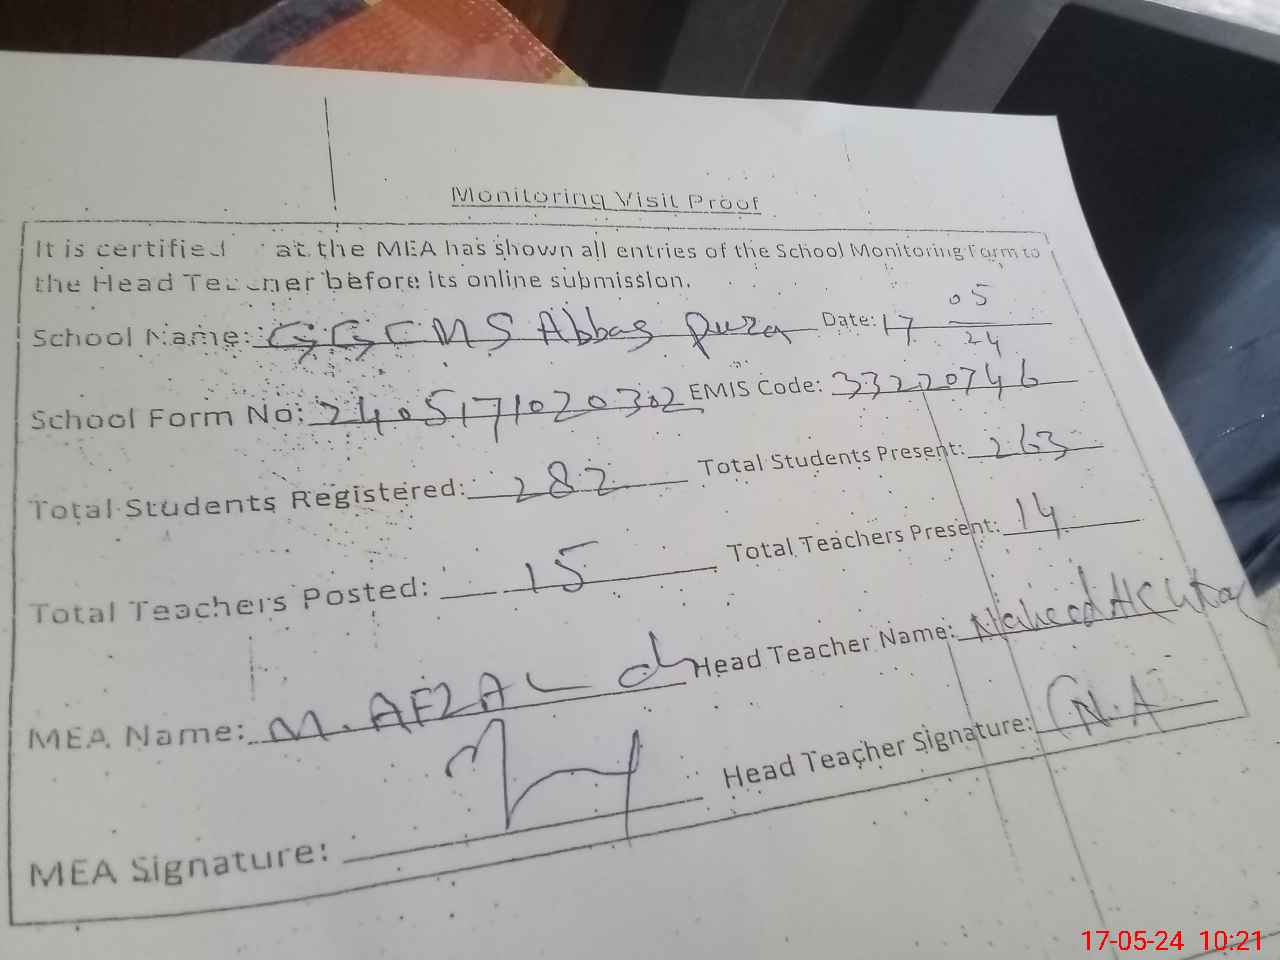 Monitoring Visit Proof
It is certified at the MEA has shown all entries of the School Monitoring Form to
the Head Teacher before its online submission.
School Name: GGCMS Abbas pura Date: 17 05/24
School Form No: 2405171020302 EMIS Code: 33220746
Total Students Registered: 282 Total Students Present: 263
Total Teachers Posted: 15 Total Teachers Present: 14
MEA Name: M. AFZAL Head Teacher Name: Naheed Akhtar
MEA Signature: Head Teacher Signature: N.A
17-05-24 10:21